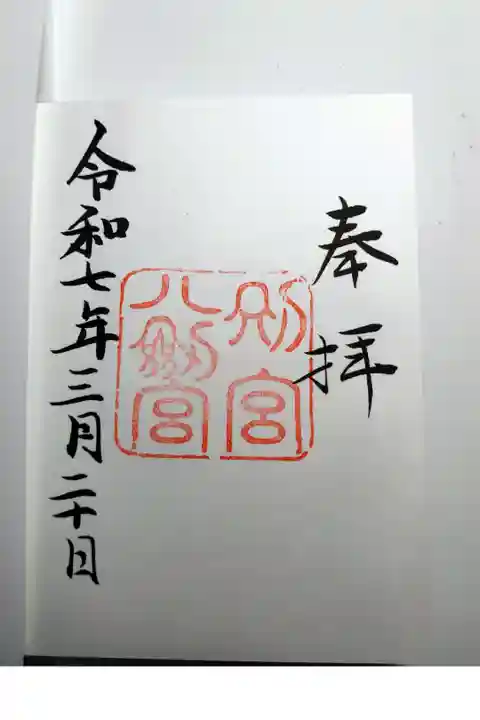 奉拝
別宮
八剣宮
令和七年三月二十日